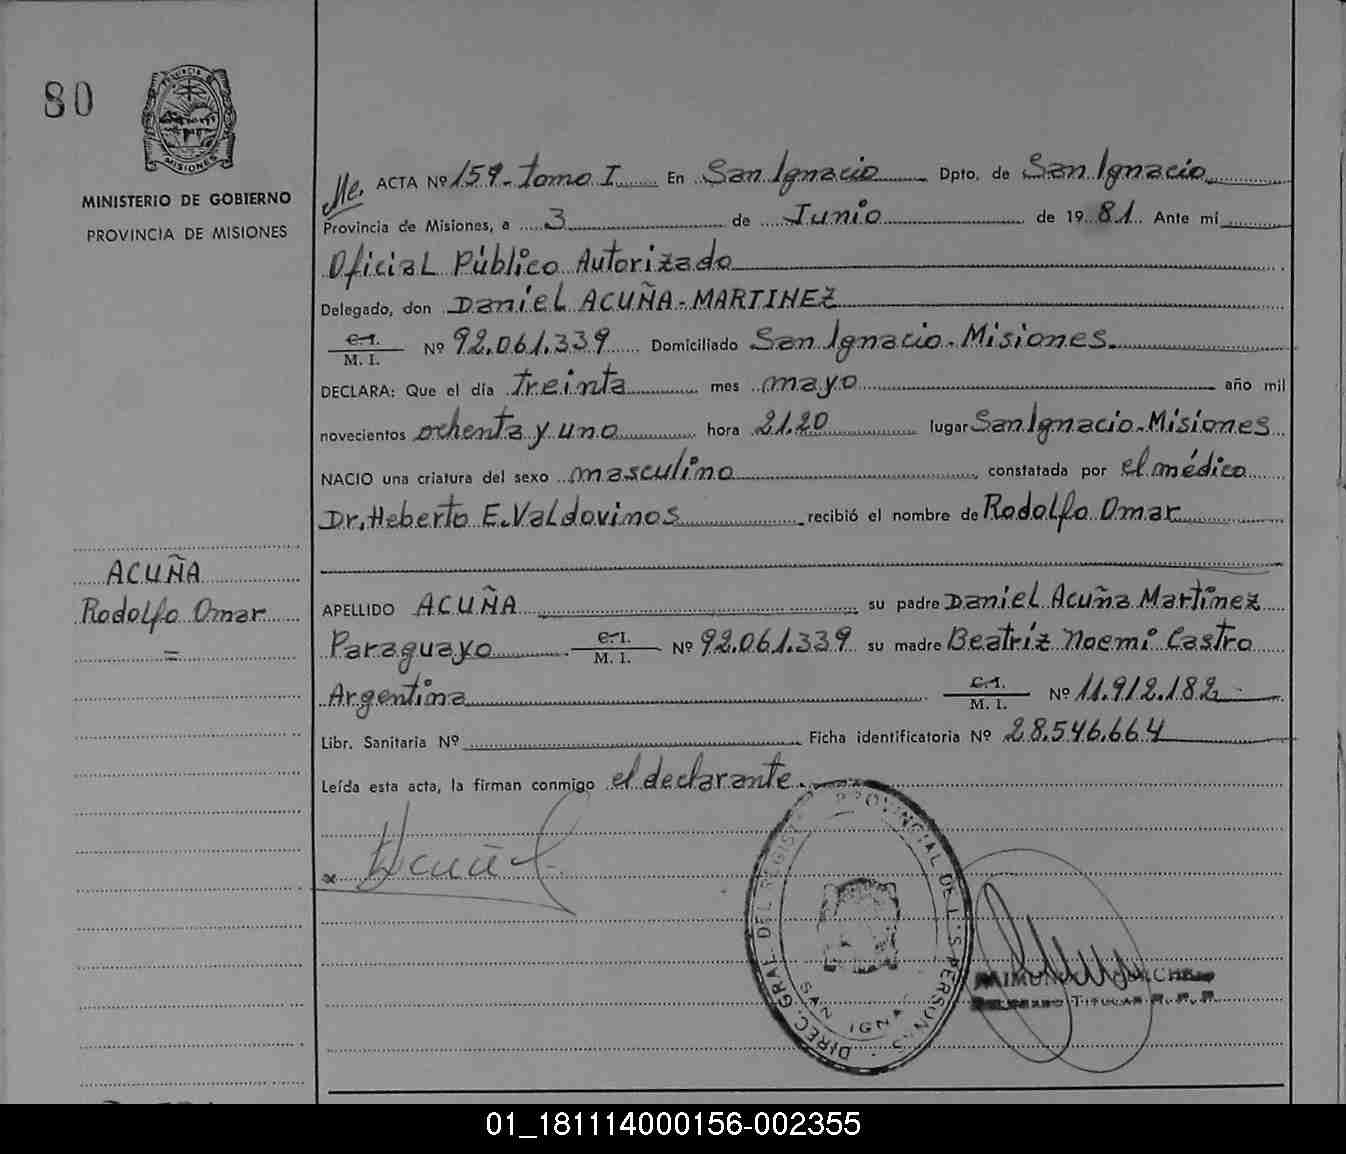 80
MISIONES
MINISTERIO DE GOBIERNO
PROVINCIA DE MISIONES
ACTA Nº 159 - Tomo I En San Ignacio Dpto. de San Ignacio
Provincia de Misiones, a 3 de Junio de 1981 Ante mí
Oficial Público Autorizado
Delegado, don Daniel ACUÑA - MARTINEZ
C.I.
M. I. Nº 92.061.339 Domiciliado San Ignacio - Misiones.
DECLARA: Que el día treinta mes mayo año mil
novecientos ochenta y uno hora 21.20 lugar San Ignacio - Misiones
NACIO una criatura del sexo masculino constatada por el médico
Dr. Heberto E. Valdovinos recibió el nombre de Rodolfo Omar
ACUÑA
Rodolfo Omar
=
APELLIDO ACUÑA su padre Daniel Acuña Martínez
Paraguayo C.I. M. I. Nº 92.061.339 su madre Beatriz Noemi Castro
Argentina C.I. M. I. Nº 11.912.182
Libr. Sanitaria Nº Ficha identificatoria Nº 28.546.664
Leída esta acta, la firman conmigo el declarante.
x Acuña
DIREC. GRAL. DEL REGIST. PROVINCIAL DE L'S PERSON'S
SAN IGNAC
TITULAR R. P. P.
01_181114000156-002355